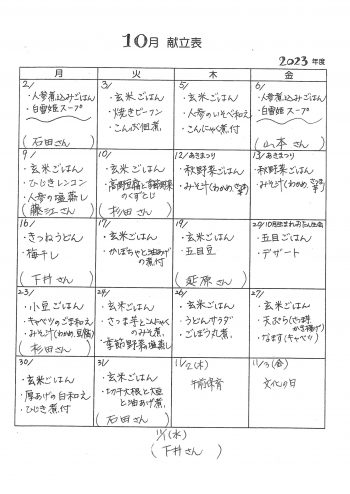 10月 献立表
2023 年度
月 火 木 金
2/
・人参煮込みごはん
・白雪姫スープ
(石田さん)
3/
・玄米ごはん
・焼きビーフン
・こんぶ佃煮
5/
・玄米ごはん
・人参のいそべ和え
・こんにゃく煮付
6/
・人参煮込みごはん
・白雪姫スープ
(山本さん)
9/
・玄米ごはん
・ひじきレンコン
・人参の塩蒸し
10/
・玄米ごはん
・高野豆腐と季節野菜
のくずとじ
(杉田さん)
12/あきまつり
・秋野菜ごはん
・みそ汁(わかめ、
13/あきまつり
・秋野菜ごはん
・みそ汁(わかめ、
16/
・きつねうどん
・梅干し
(下井さん)
17/
・玄米ごはん
・かぼちゃと油あげ
の煮付
19/
・玄米ごはん
・五目豆
(延原さん)
20/10月生まれおたん生会
・五目ごはん
・デザート
23/
・小豆ごはん
・キャベツのごま和え
・みそ汁(わかめ、豆腐)
(杉田さん)
24/
・玄米ごはん
・さつま芋とこんにゃく
のみそ煮
・季節野菜塩蒸し
26/
・玄米ごはん
・うどんサラダ
・ごぼう丸煮
27/
・玄米ごはん
・天ぷら(さつま芋
かき揚げ)
・なます(キャベツ)
30/
・玄米ごはん
・厚あげの白和え
・ひじき煮付
31/
・玄米ごはん
・切干大根と大豆
と油あげ煮
(石田さん)
11/2(木)
午前保育
11/3(金)
文化の日
11/1(水)
(下井さん)